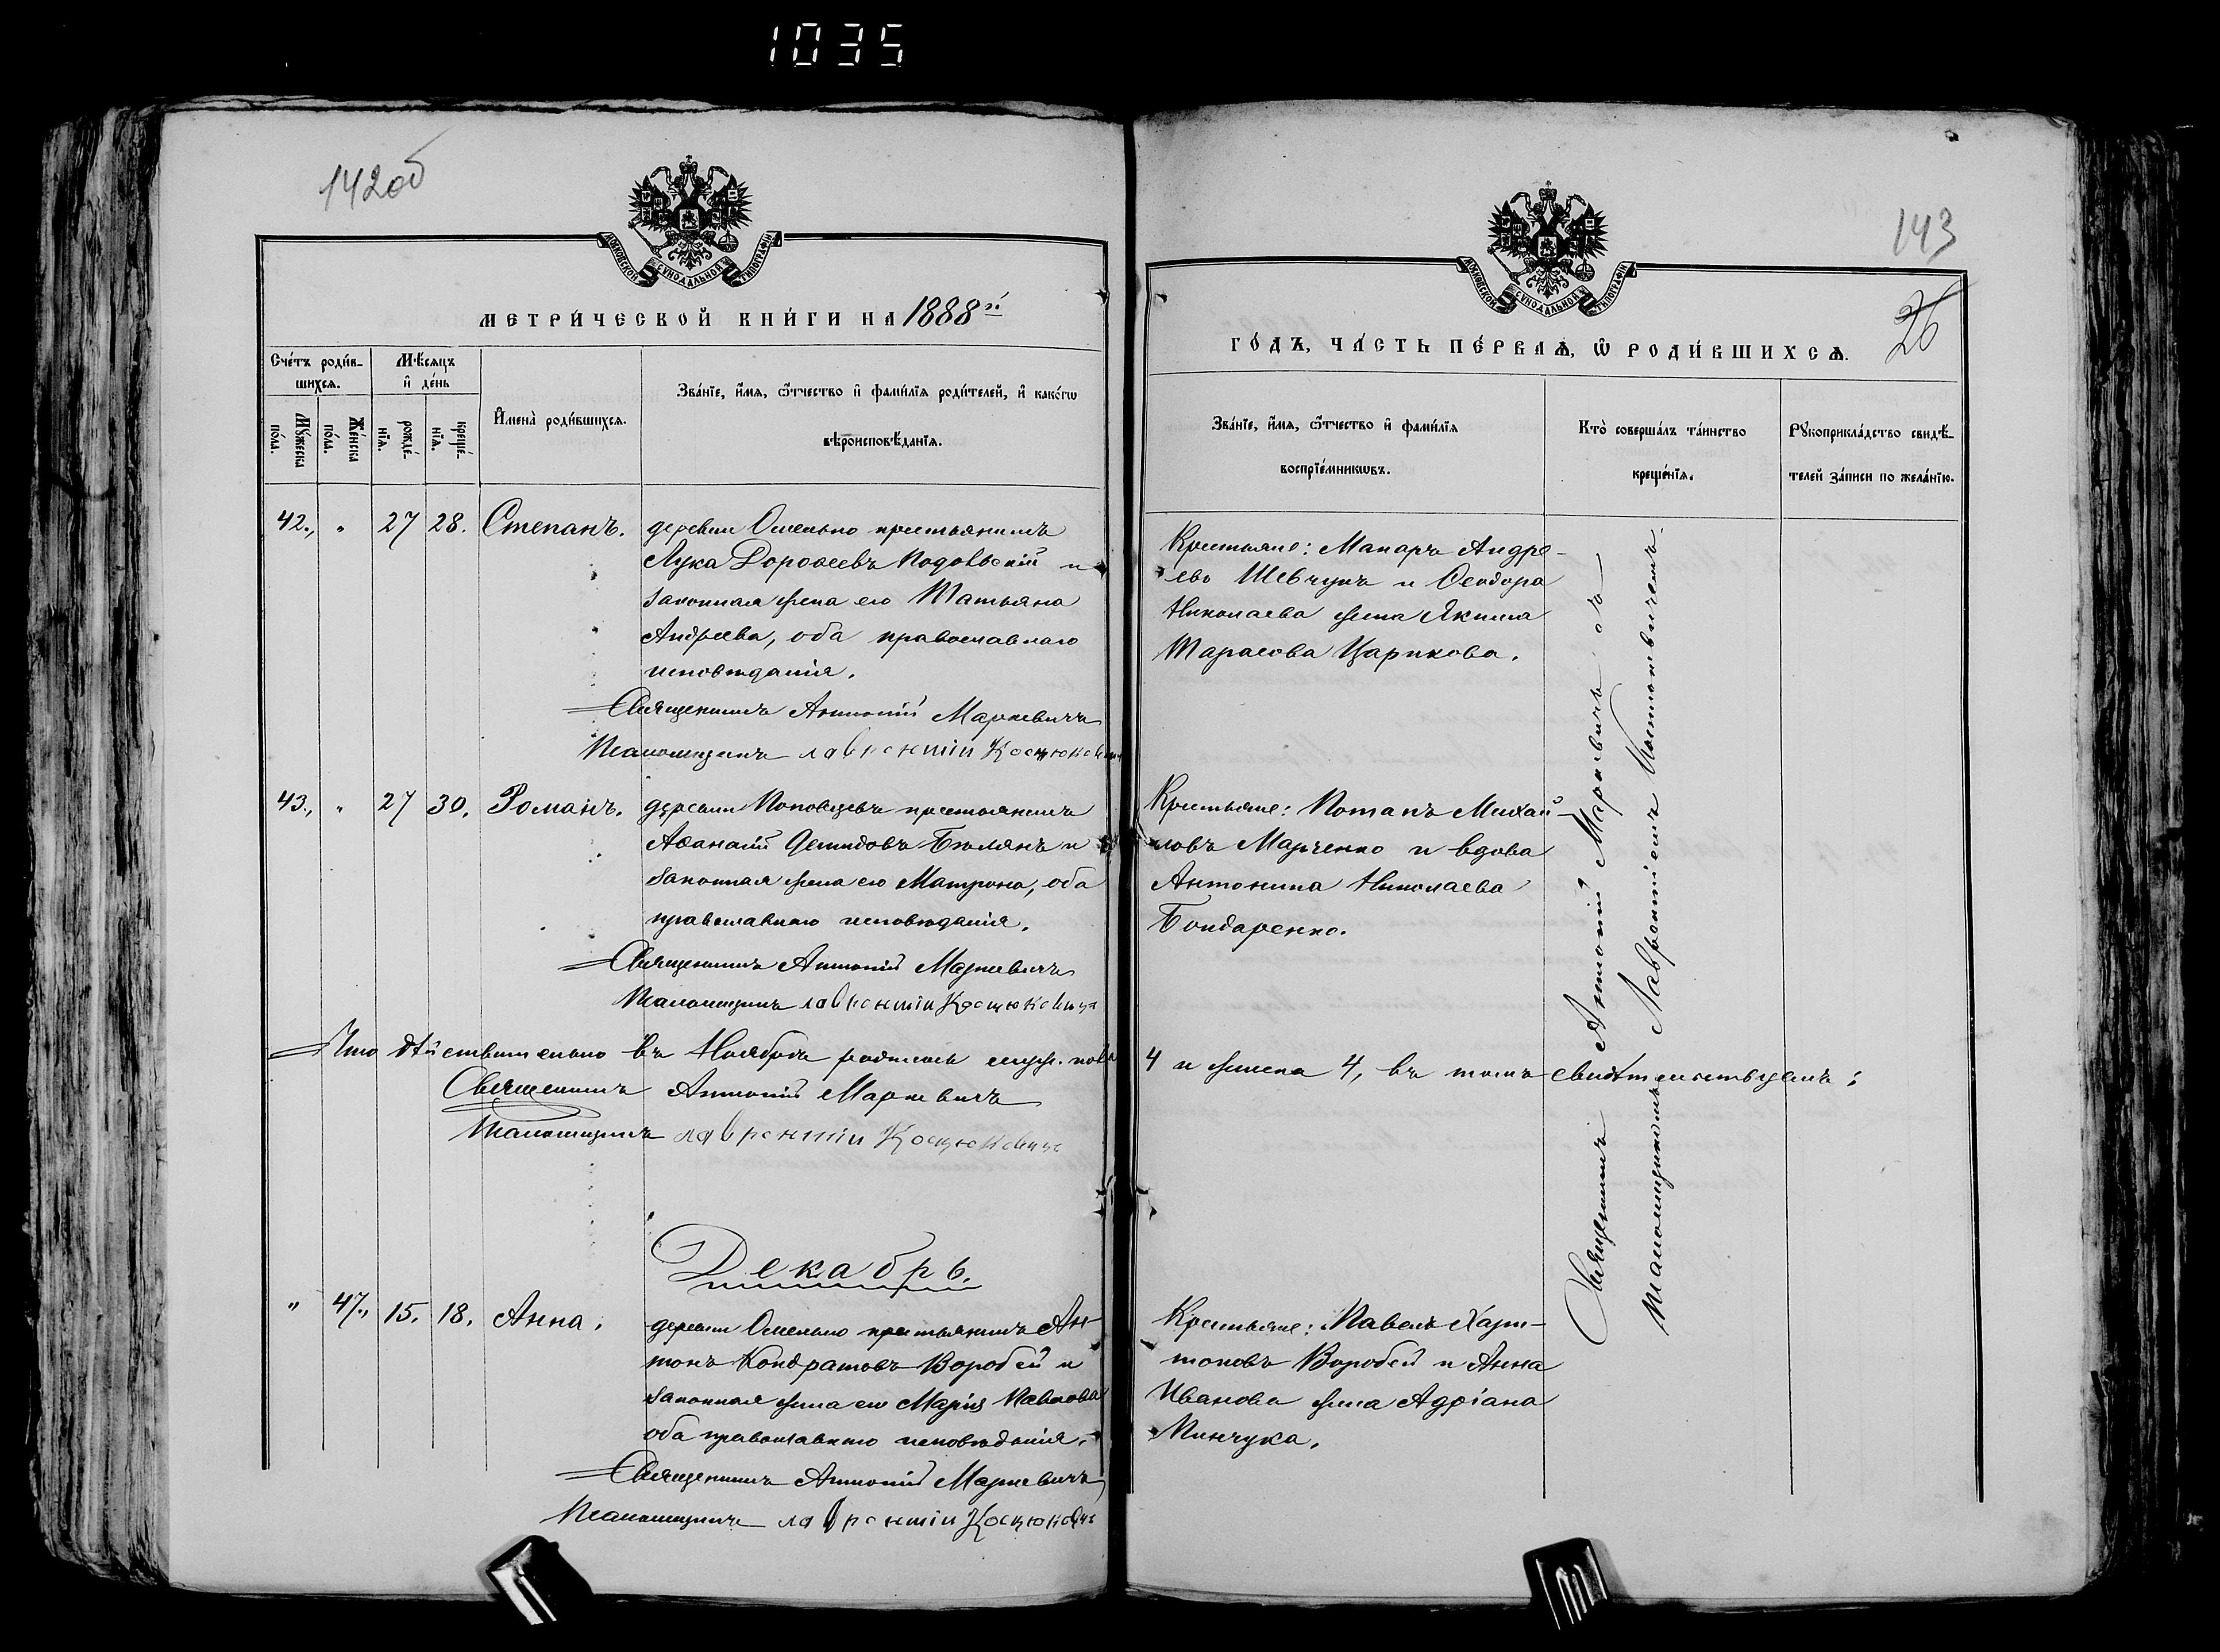 1035
142об
МОСКОВСКОЙ СѴНОДАЛЬНОЙ ТИПОГРАФІИ
МЕТРИ́ЧЕСКОЙ КНИ́ГИ НА 1888й
Сче́тъ роди́в-
шихсѧ.
Мѣ́сяцъ
и҆ де́нь
Мꙋ́жеска
по́ла.
Же́нска
по́ла.
рожде́-
нїѧ.
креще́-
нїѧ.
И҆мена̀ роди́вшихсѧ.
Зва́нїе, и҆́мѧ, ѻ҆́тчество и҆ фами́лїѧ роди́телей, и҆ како́гѡ
вѣроисповѣ́данїѧ.
42., " 27 28. Степанъ. деревни Омельно крестьянинъ
Лука Дороѳеевъ Подольскій и
законная жена его Татьяна
Андреева, оба православнаго
исповѣданія.
Священникъ Антоній Маркевичъ
Псаломщикъ Лаврентій Косцюкевичъ
43., " 27 30. Романъ. деревни Поповцевъ крестьянинъ
Аѳанасій Демидовъ Бѣлянъ и
законная жена его Матрона, оба
православнаго исповѣданія.
Священникъ Антоній Маркевичъ
Псаломщикъ Лаврентій Косцюкевичъ
Что дѣйствительно въ Ноябрѣ родилось муж. пола
Священникъ Антоній Маркевичъ
Псаломщикъ Лаврентій Косцюкевичъ
Декабрь.
" 47., 15. 18. Анна. деревни Омельно крестьянинъ Ан-
тонъ Кондратовъ Воробей и
законная жена его Марія Павлова
оба православнаго исповѣданія.
Священникъ Антоній Маркевичъ
Псаломщикъ Лаврентій Косцюкевичъ
143
26
МОСКОВСКОЙ СѴНОДАЛЬНОЙ ТИПОГРАФІИ
ГО́ДЪ, ЧА́СТЬ ПЕ́РВАѦ, Ѡ҆ РОДИ́ВШИХСѦ.
Зва́нїе, и҆́мѧ, ѻ҆́тчество и҆ фами́лїѧ
воспрїе́мникѡвъ.
Кто̀ соверша́лъ та́инство
креще́нїѧ.
Рꙋкоприкла́дство свидѣ́-
телей за́писи по жела́нїю.
Крестьяне: Макаръ Андре-
евъ Шевчукъ и Ѳеодора
Николаева жена Якима
Тарасова Царикова.
Крестьяне: Потапъ Михай-
ловъ Марченко и вдова
Антонина Николаева
Бондаренко.
4 и женска 4, въ томъ свидѣтельствуемъ:
Крестьяне: Павелъ Хари-
тоновъ Воробей и Анна
Иванова жена Адріана
Минчука.
Священникъ Антоній Маркевичъ съ
Псаломщикомъ Лаврентіемъ Костюкевичемъ